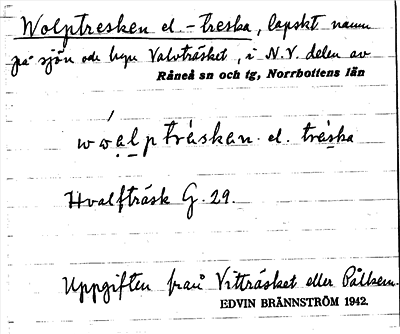 Wolptresken el. -treska, lapskt namn
på sjön och byn Valvträsket, i N.V. delen av
Råneå sn och tg, Norrbottens län
wẃalptráskan. el. tráska
Hvalfträsk G. 29.
Uppgiften från Vitträsket eller Pålkem.
EDVIN BRÄNNSTRÖM 1942.